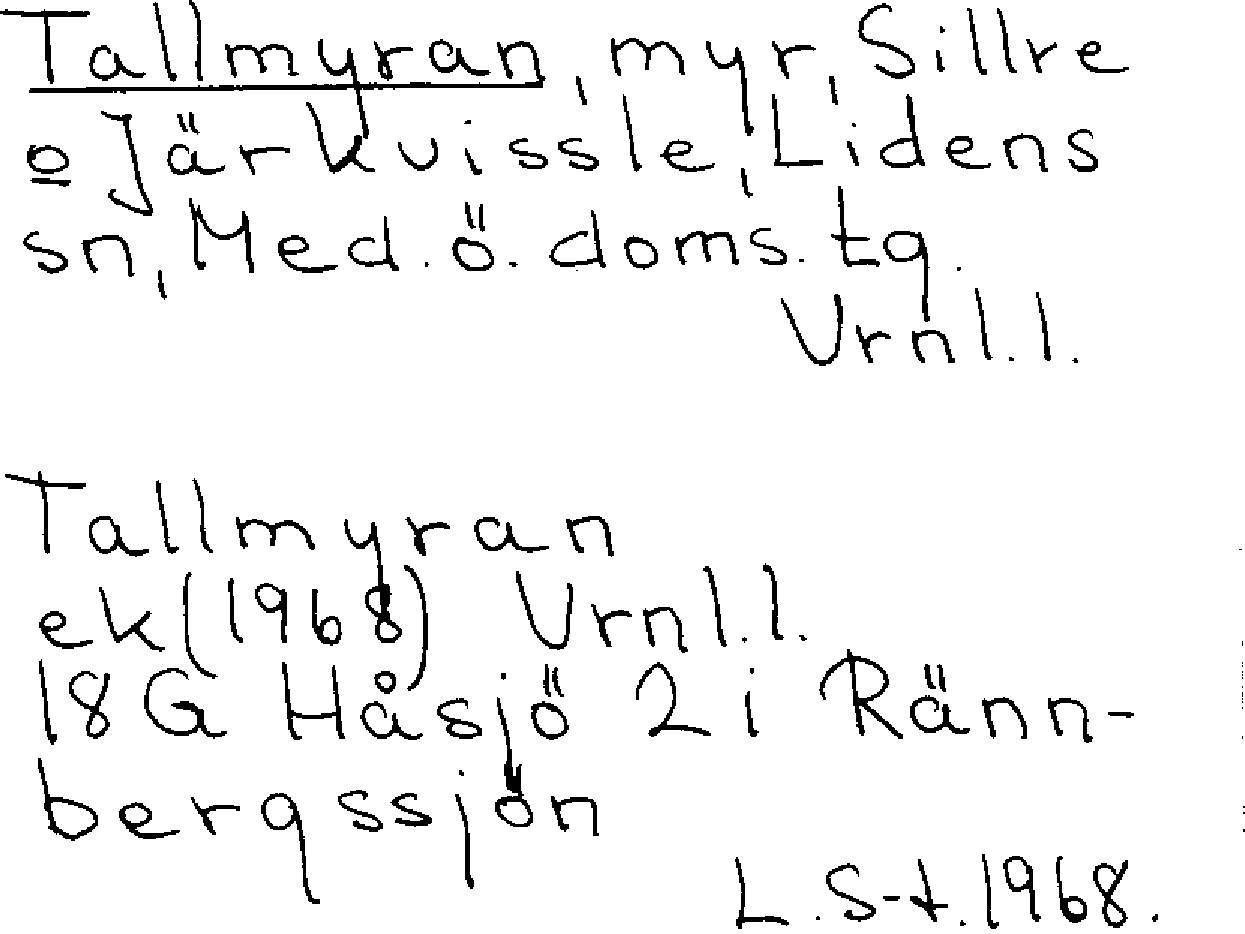 Tallmyran, myr, Sillre
o Järkvissle, Lidens
sn, Med. ö. doms. tg.
Vrnl.l.
Tallmyran
ek(1968) Vrnl.l.
18G Håsjö 2 i Ränn-
bergssjön
L.S-t.1968.